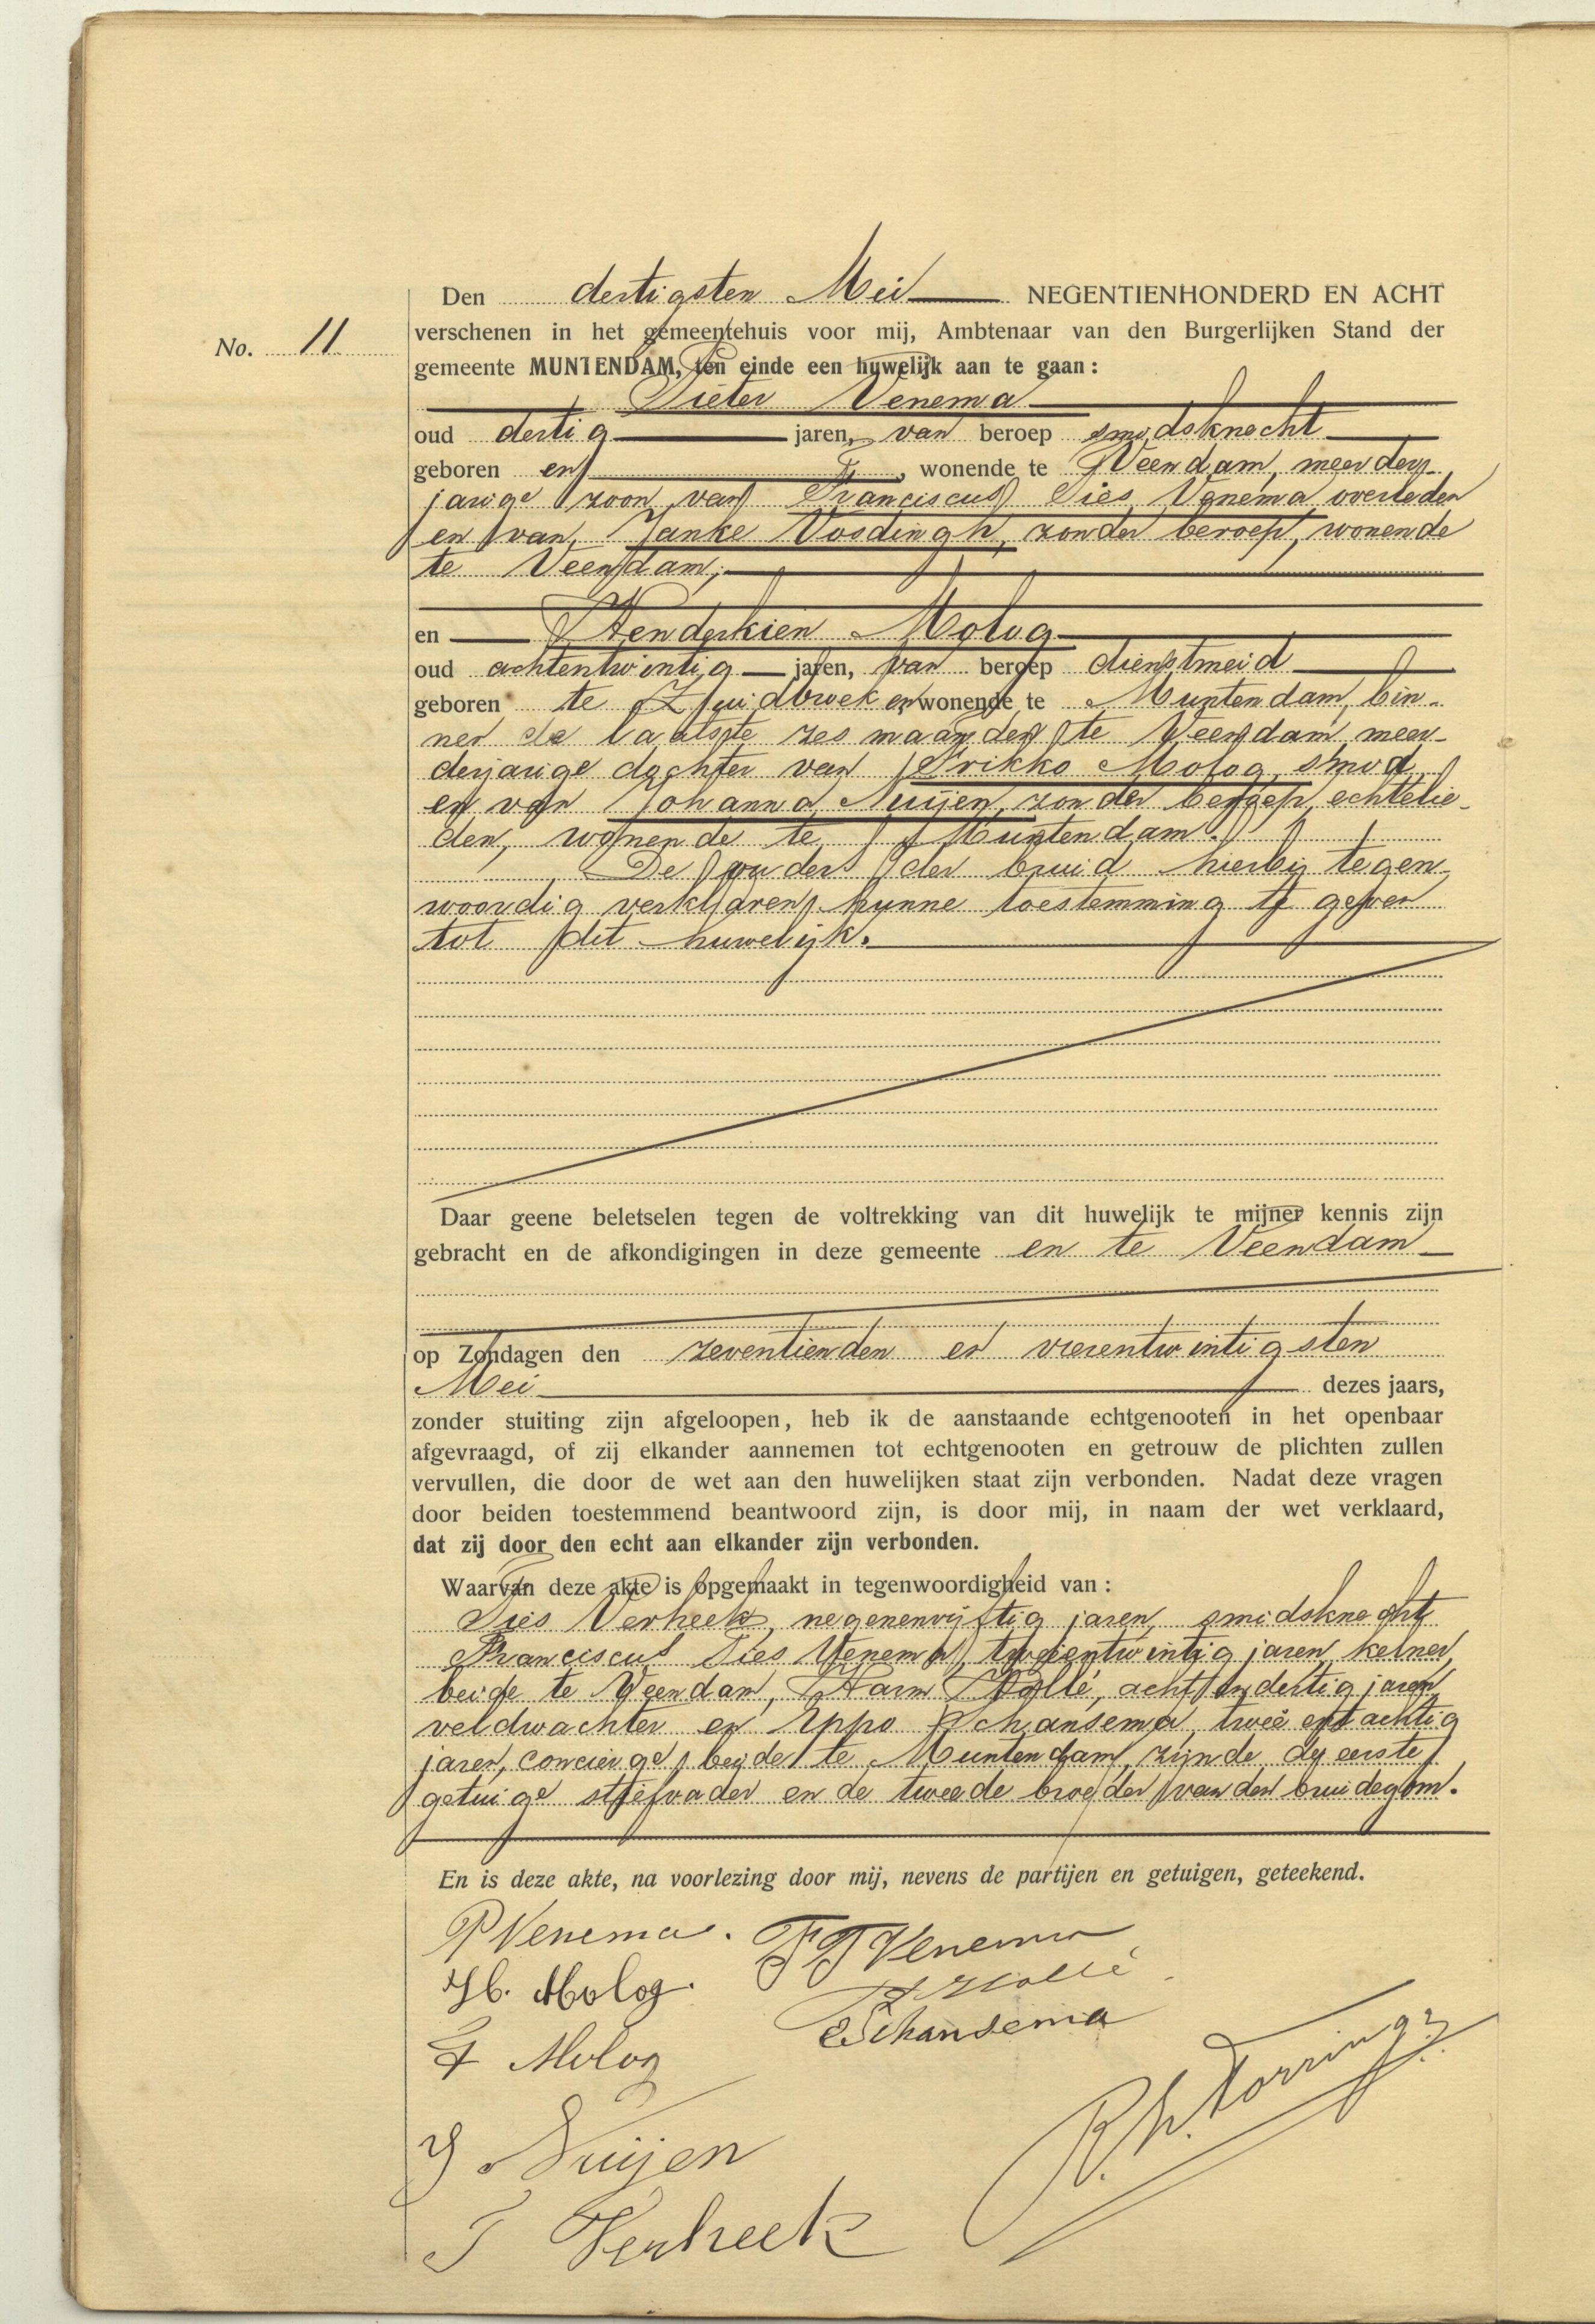 No. 11
Den dertigsten Mei NEGENTIENHONDERD EN ACHT
verschenen in het gemeentehuis voor mij, Ambtenaar van den Burgerlijken Stand der
gemeente MUNTENDAM, ten einde een huwelijk aan te gaan:
Pieter Venema
oud dertig jaren, van beroep smidsknecht
geboren en, wonende te Veendam, meerder-
jarige zoon van Franciscus Ties Venema overleden
en van Janke Vosdingh, zonder beroep, wonende
te Veendam;
en Henderkien Molog
oud achtentwintig jaren, van beroep dienstmeid
geboren te Zuidbroek en wonende te Muntendam, bin-
nen de laatste zes maanden te Veendam meer-
derjarige dochter van Frikko Molog, smid,
en van Johanna Nuijen, zonder beroep, echtelie-
den, wonende te Muntendam.
De ouders der bruid hierbij tegen-
woordig verklaren hunne toestemming te geven
tot dit huwelijk.
Daar geene beletselen tegen de voltrekking van dit huwelijk te mijner kennis zijn
gebracht en de afkondigingen in deze gemeente en te Veendam
op Zondagen den zeventienden en vierentwintigsten
Mei dezes jaars,
zonder stuiting zijn afgeloopen, heb ik de aanstaande echtgenooten in het openbaar
afgevraagd, of zij elkander aannemen tot echtgenooten en getrouw de plichten zullen
vervullen, die door de wet aan den huwelijken staat zijn verbonden. Nadat deze vragen
door beiden toestemmend beantwoord zijn, is door mij, in naam der wet verklaard,
dat zij door den echt aan elkander zijn verbonden.
Waarvan deze akte is opgemaakt in tegenwoordigheid van:
Ties Verheek, negenenvijftig jaren, smidsknecht
Franciscus Ties Venema, tweeentwintig jaren, kelner,
beide te Veendam, Harm Kollé, acht en dertig jaren
veldwachter en Eppo Schansema, twee en tachtig
jaren, concierge, beide te Muntendam, zijnde de eerste
getuige stiefvader en de tweede broeder van den bruidegom.
En is deze akte, na voorlezing door mij, nevens de partijen en getuigen, geteekend.
P Venema. FT Venema
H. Molog. H Kollé.
F Molog E Schansema
J Nuijen
T Verheek